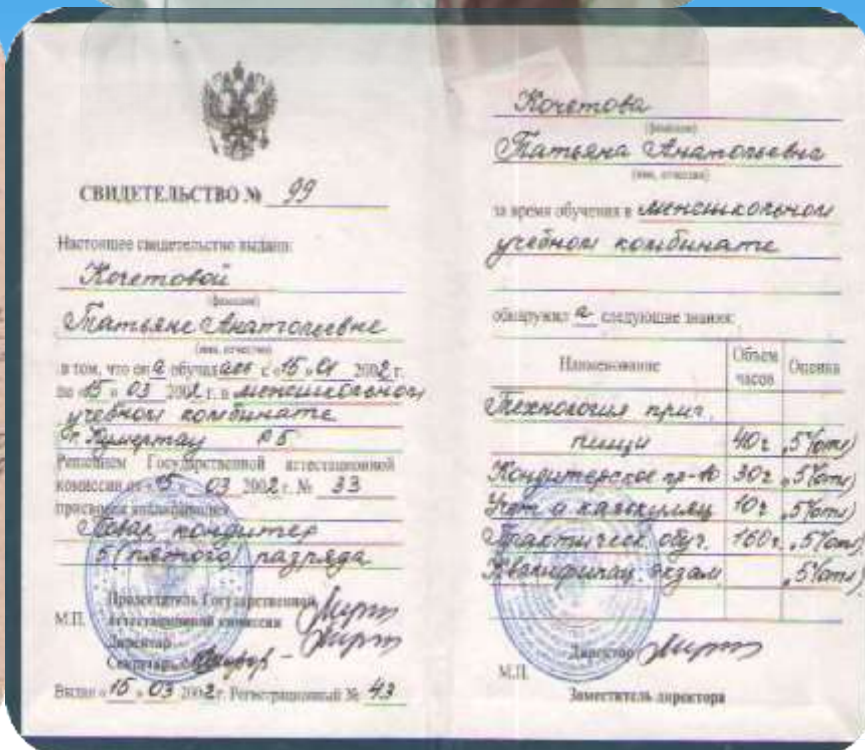 СВИДЕТЕЛЬСТВО № 99
Настоящее свидетельство выдано
Кочетовой
(фамилия)
Татьяне Анатольевне
(имя, отчество)
в том, что он а обучалась с «15» 01 2002 г.
по «15» 03 2002 г. в межшкольном
учебном комбинате
г. Кумертау РБ
Решением Государственной аттестационной
комиссии от «15» 03 2002 г. № 33
присвоена квалификация
Повар, кондитер
5 (пятого) разряда
Председатель Государственной
М.П. аттестационной комиссии
Директор
Секретарь
Выдано «15» 03 2002 г. Регистрационный № 43
Кочетова
(фамилия)
Татьяна Анатольевна
(имя, отчество)
за время обучения в межшкольном
учебном комбинате
обнаружил а следующие знания:
Наименование Объем часов Оценка
Технология приг.
пищи 40ч „5"(отл)
Кондитерское пр-во 30ч „5"(отл)
Учет и калькуляц 10ч „5"(отл)
Практическ обуч. 160ч „5"(отл)
Квалификац экзам „5"(отл)
Директор
М.П.
Заместитель директора